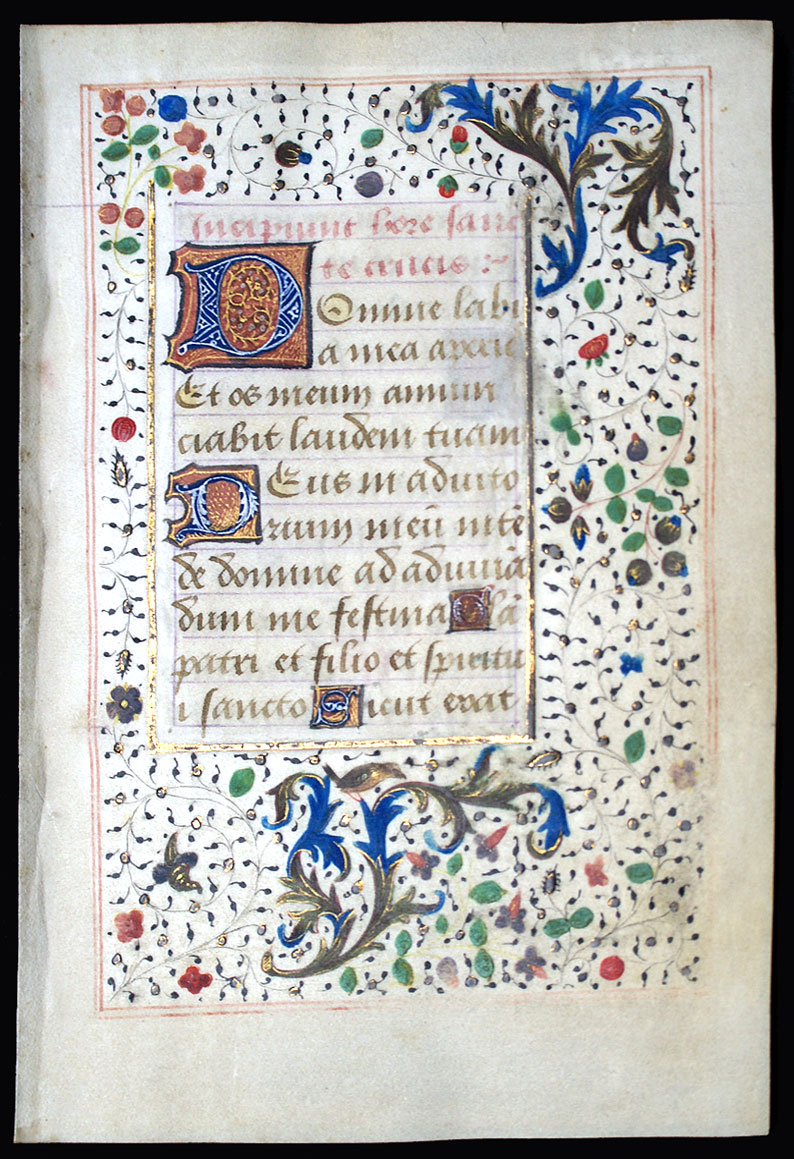 Incipiunt hore sanc
te crucis :~
Domine labi
a mea aperie
Et os meum annun
ciabit laudem tuam
Deus in adiuto
rium meū inte
de domine ad adiuuā
dum me festina Glā
patri et filio et spiritu
i sancto Sicut erat